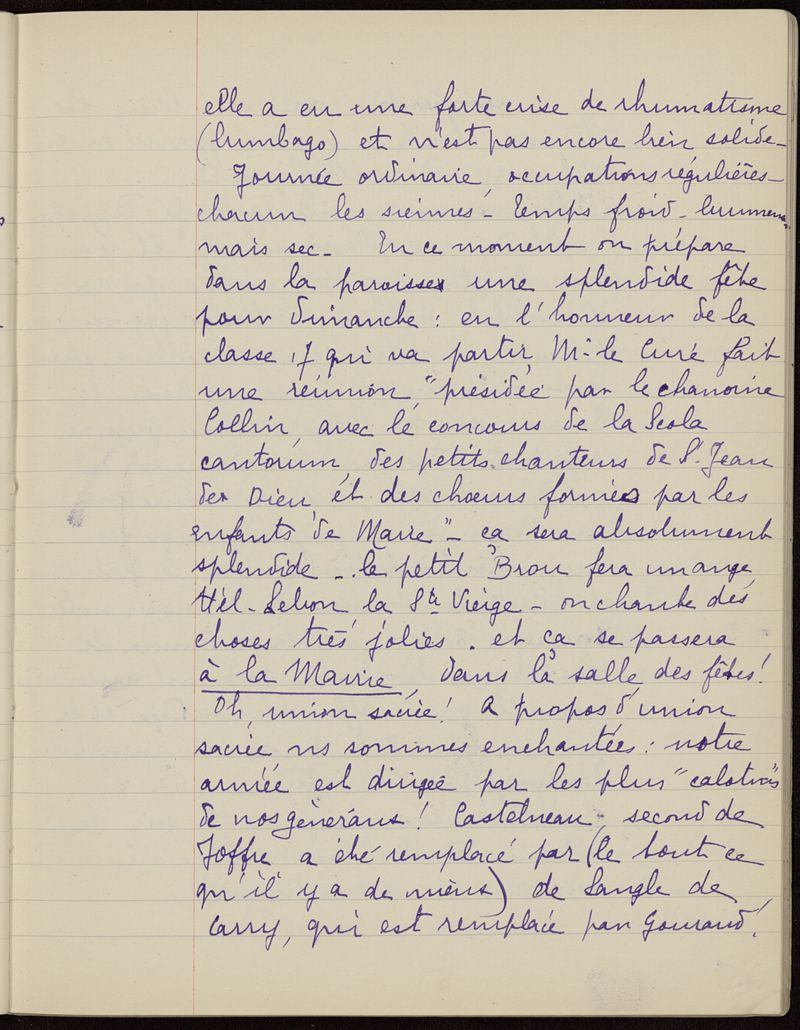 elle a eu une forte crise de rhumatisme
(lumbago) et n'est pas encore bien solide -
Journée ordinaire, occupations régulières -
chacun les siennes - Temps froid - brumeux
mais sec - En ce moment on prépare
dans la paroisse une splendide fête
pour dimanche : en l'honneur de la
classe 17 qui va partir, Mr le Curé fait
une réunion, "présidée par le chanoine
Collin, avec le concours de la Scola
cantorum, des petits chanteurs de St Jean
de Dieu, et des chœurs formés par les
enfants de Marie" - ça sera absolument
splendide - le petit Brou fera un ange
Hél. Lebon la Ste Vierge - on chante des
choses très jolies . et ça se passera
à la Mairie, dans la salle des fêtes !
Oh, union sacrée ! A propos d'union
sacrée ns sommes enchantées : notre
armée est dirigée par les plus "calotins"
de nos généraux ! Castelneau, second de
Joffre a été remplacé par (le tout ce
qu'il y a de mieux) de Langle de
Carry, qui est remplacé par Gouraud !